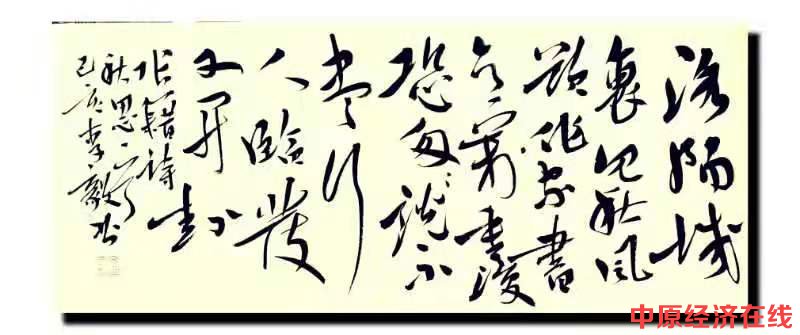 洛陽城
裏见秋风
欲作家書
意万重復
恐匆匆说不
尽行
人臨發
又开封
张籍诗
秋思
己亥李毅书
中原经济在线